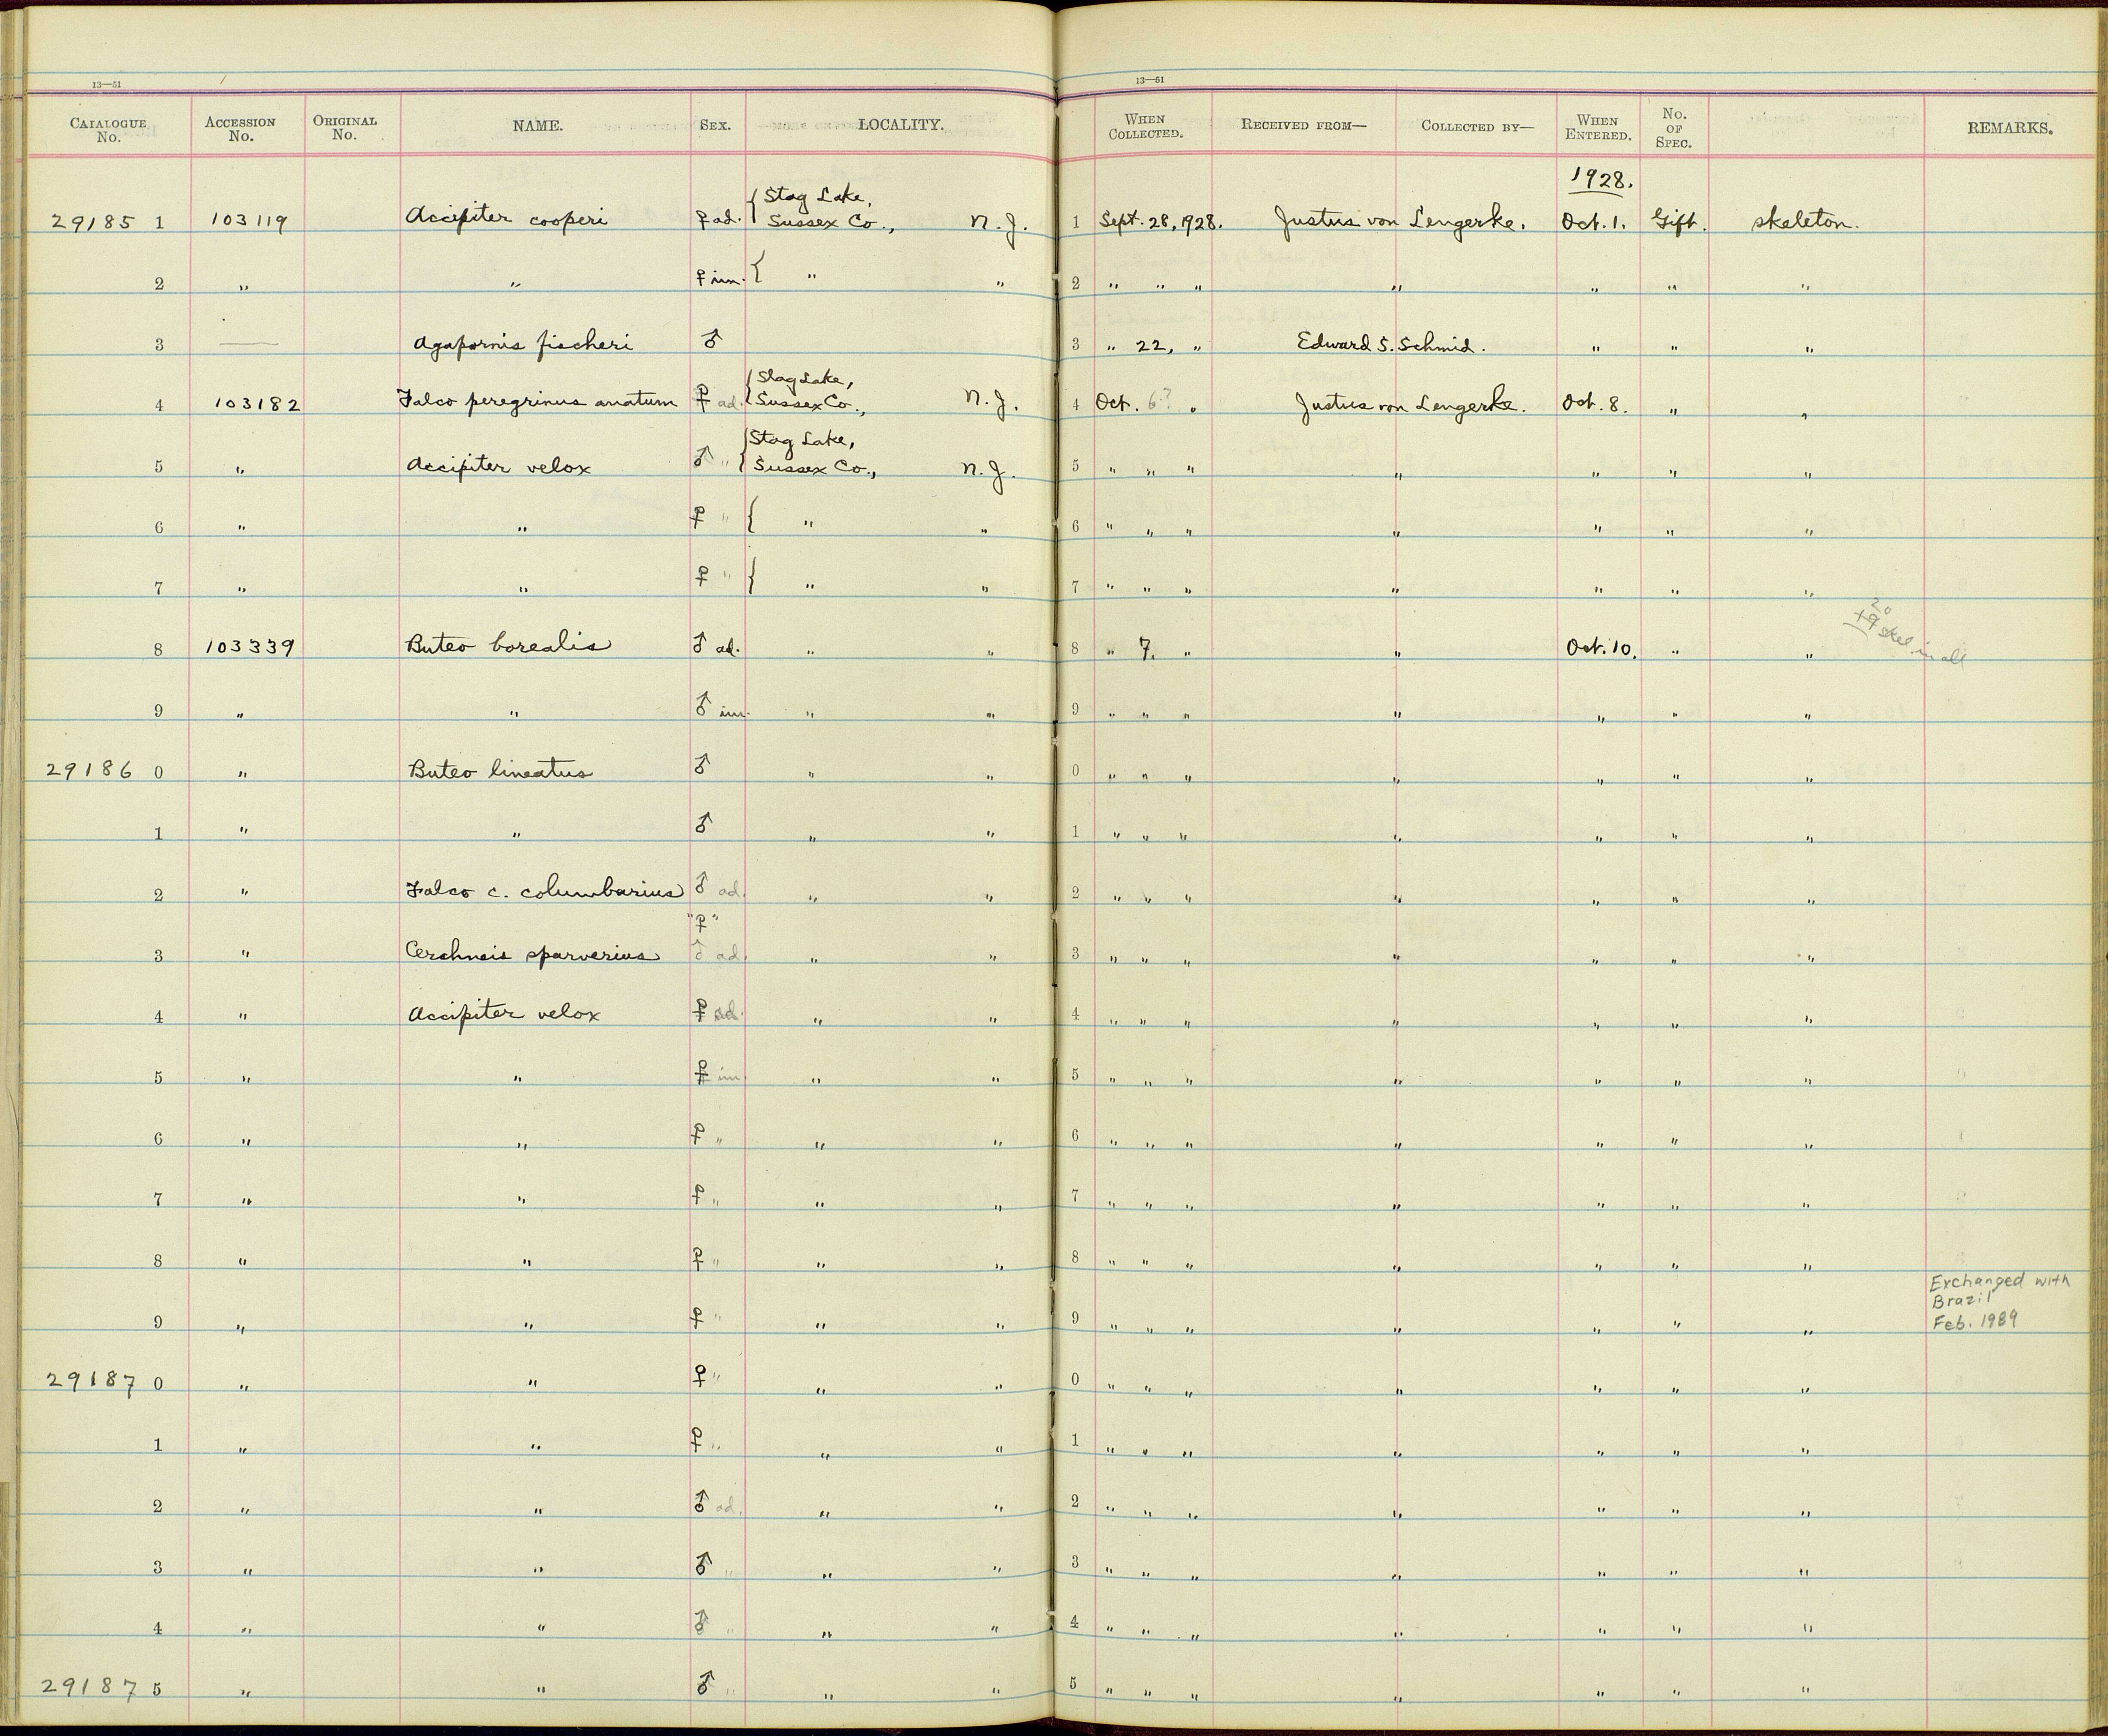 13—51 13—51
CATALOGUE No. ACCESSION No. ORIGINAL No. NAME. SEX. LOCALITY. WHEN COLLECTED. RECEIVED FROM— COLLECTED BY— WHEN ENTERED. No. OF SPEC. REMARKS.
1928.
29185 1 103119 Accipiter cooperi ♀ ad. { Stag Lake, Sussex Co., N.J. 1 Sept. 28, 1928. Justus von Lengerke. Oct. 1. Gift. skeleton.
2 " " ♀ im. { " " 2 " " " " " " "
3 — Agapornis fischeri ♂ 3 " 22, " Edward S. Schmid. " " "
4 103182 Falco peregrinus anatum ♀ ad. { Stag Lake, Sussex Co., N.J. 4 Oct. 6? " Justus von Lengerke. Oct. 8. " "
5 " Accipiter velox ♂ " { Stag Lake, Sussex Co., N.J. 5 " " " " " " "
6 " " ♀ " { " " 6 " " " " " " "
7 " " ♀ " { " " 7 " " " " " " "
8 103339 Buteo borealis ♂ ad. " " 8 " 7. " " Oct. 10. " " 20 19 skel. in all
9 " " ♂ im. " " 9 " " " " " " "
29186 0 " Buteo lineatus ♂ " " 0 " " " " " " "
1 " " ♂ " " 1 " " " " " " "
2 " Falco c. columbarius ♂ ad. " " 2 " " " " " " "
"♀"
3 " Cerchneis sparverius ♂ ad. " " 3 " " " " " " "
4 " Accipiter velox ♀ ad. " " 4 " " " " " " "
5 " " ♀ im. " " 5 " " " " " " "
6 " " ♀ " " " 6 " " " " " " "
7 " " ♀ " " " 7 " " " " " " "
8 " " ♀ " " " 8 " " " " " " "
9 " " ♀ " " " 9 " " " " " " " Exchanged with Brazil Feb. 1989
29187 0 " " ♀ " " " 0 " " " " " " "
1 " " ♀ " " " 1 " " " " " " "
2 " " ♂ ad. " " 2 " " " " " " "
3 " " ♂ " " " 3 " " " " " " "
4 " " ♂ " " " 4 " " " " " " "
29187 5 " " ♂ " " " 5 " " " " " " "